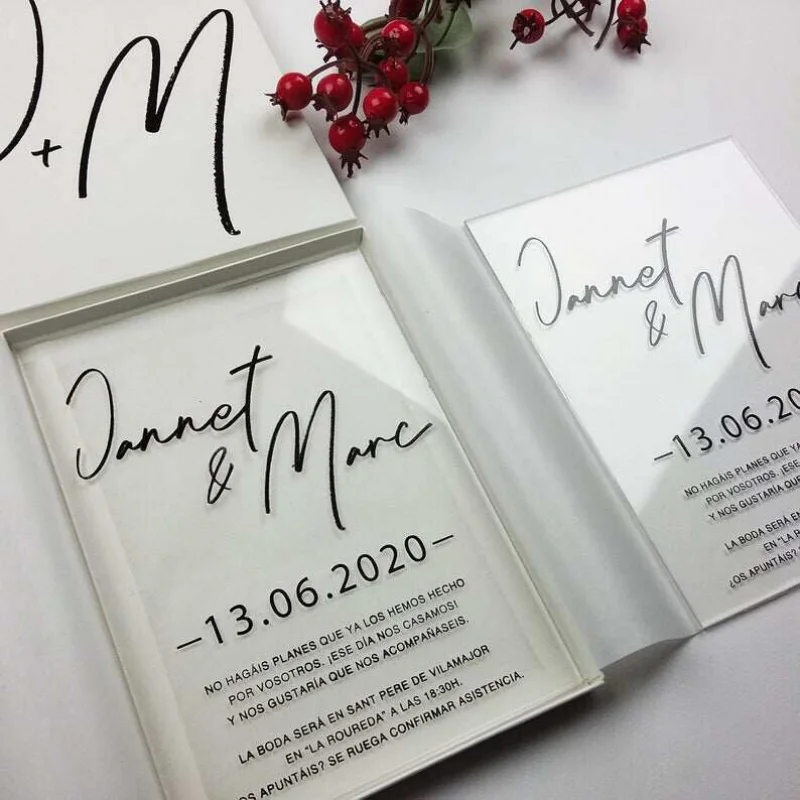 + M
Jannet
& Marc
–13.06.2020–
NO HAGÁIS PLANES QUE YA LOS HEMOS HECHO
POR VOSOTROS. ¡ESE DÍA NOS CASAMOS!
Y NOS GUSTARÍA QUE NOS ACOMPAÑASEIS.
LA BODA SERÁ EN SANT PERE DE VILAMAJOR
EN "LA ROUREDA" A LAS 18:30H.
OS APUNTÁIS? SE RUEGA CONFIRMAR ASISTENCIA.
Jannet
& Marc
–13.06.20
NO HAGÁIS PLANES QUE YA
POR VOSOTROS. ¡ESE
Y NOS GUSTARÍA QUE
LA BODA SERÁ EN
EN "LA ROU
¿OS APUNTÁIS?